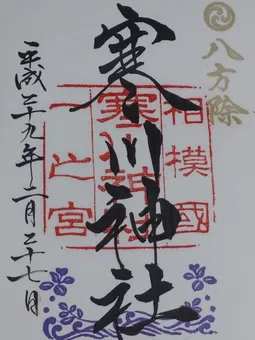 八方除
相模國
寒川神社
一之宮
平成二十九年二月二十七日